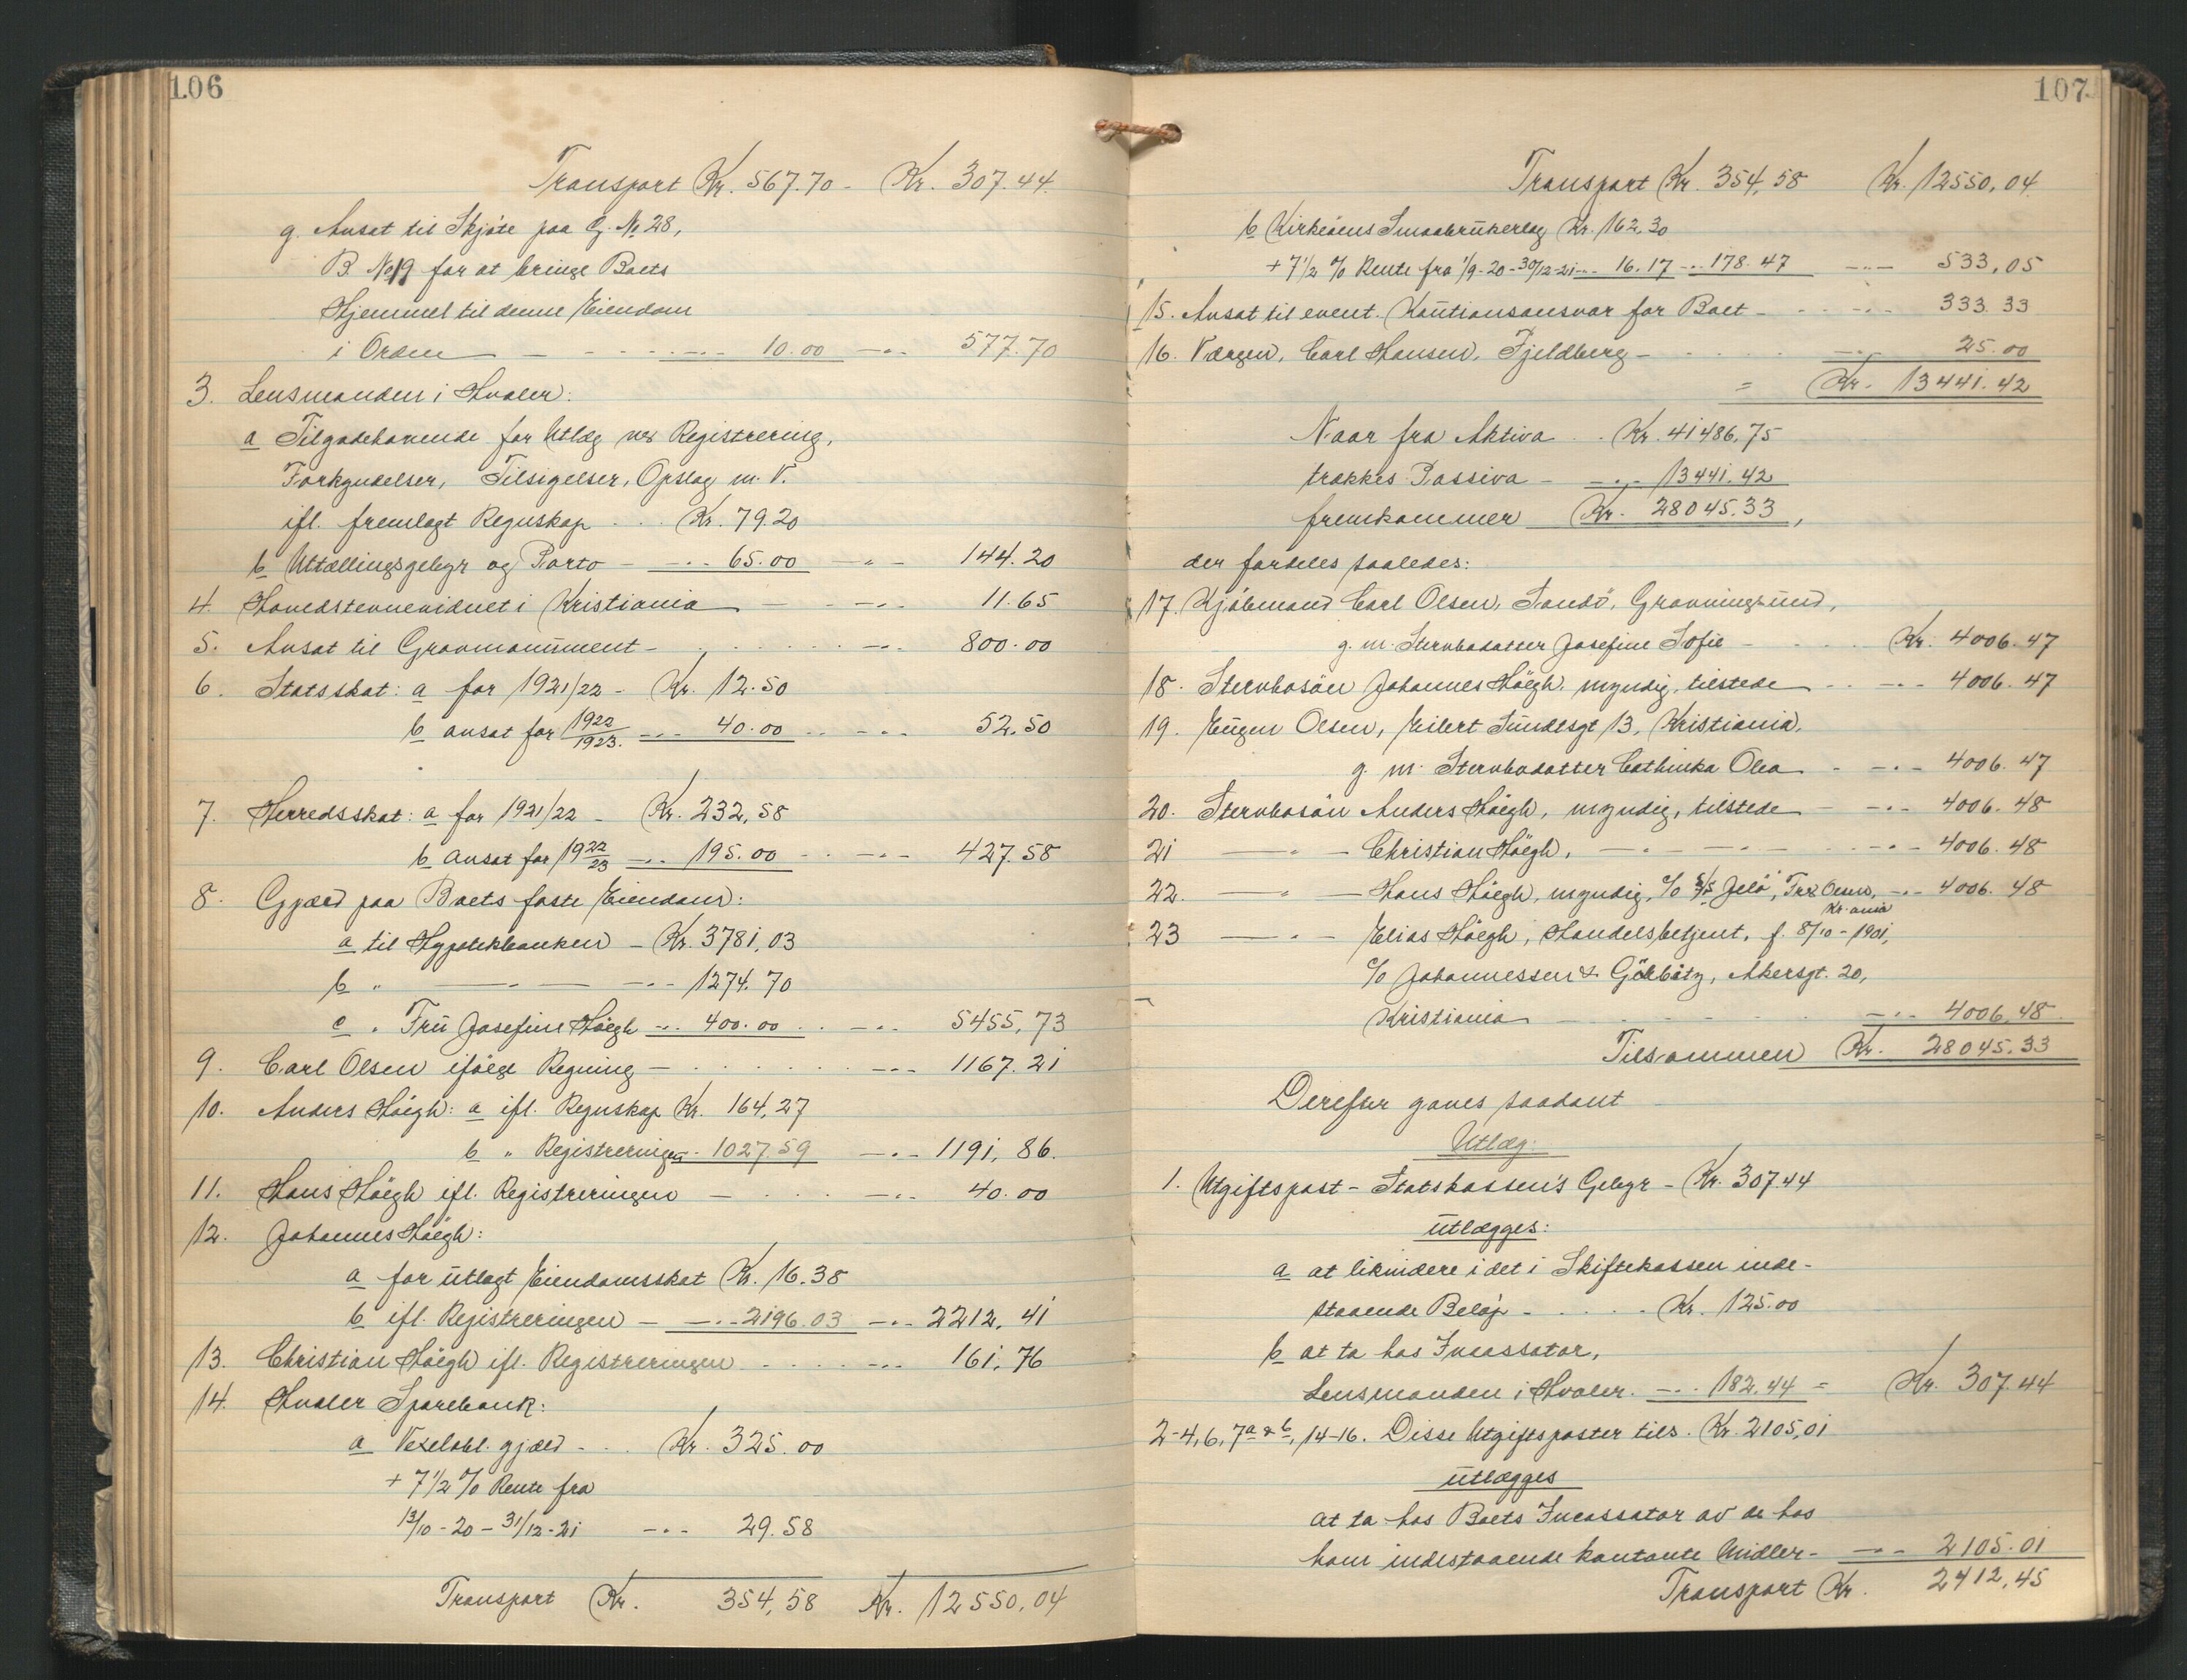 106
Transport Kr. 567.70 - Kr. 307.44.
g. Ansat til Skjöte paa G. No 28,
B No 19 for at bringe Boets
Hjemmel til denne Eiendom
i Orden - - - - -"- 10.00 -"- 577.70
3. Lensmanden i Hvaler:
a Tilgodehavende for Utlæg ved Registrering,
Forkyndelser, Tilsigelser, Opslag m. v.
ifl. fremlagt Regnskap . . Kr. 79.20
b Uttællingsgebyr og Porto - -"- 65.00 -"- 144.20
4. Hovedstevnevidnet i Kristiania - - -"- 11.65
5. Ansat til Gravmonument - . . . . . -"- 800.00
6. Statsskat: a for 1921/22 - Kr. 12.50
b ansat for 1922/1923. -"- 40.00 . . -"- 52.50
7. Herredsskat: a for 1921/22 - Kr. 232,58
b ansat for 1922/23 -"- 195.00 . . -"- 427.58
8. Gjæld paa Boets faste Eiendom:
a til Hypotekbanken - Kr. 3781,03
b " -"- - -"- 1274.70
c " Fru Josefine Höegh -"- 400.00 . . -"- 5455,73
9. Carl Olsen ifölge Regning - . . . . . -"- 1167.21
10. Anders Höegh: a ifl. Regnskap Kr. 164,27
b " Registreringen - 1027.59 -"- 1191,86.
11. Hans Höegh ifl. Registreringen - . . . -"- 40.00
12. Johannes Höegh:
a for utlagt Eiendomsskat Kr. 16.38
b ifl. Registreringen - -"- 2196.03 -"- 2212,41
13. Christian Höegh ifl. Registreringen . . . . -"- 161,76
14. Hvaler Sparebank:
a Vexelobl. gjæld - . . Kr. 325.00
+ 7 1/2 % Rente fra
13/10-20 - 31/12-21 -"- 29.58
Transport Kr. 354,58 Kr. 12550,04
107
Transport Kr. 354,58 Kr. 12550,04.
b Kirköens Smaabrukerlag Kr. 162,30
+ 7 1/2 % Rente fra 1/9-20 - 30/12-21 -"- 16.17 -"- 178.47 -"- 533,05
15. Ansat til event. Kautionsansvar for Boet - . . -"- 333.33
16. Værgen, Carl Hansen, Fjeldberg - . . . . -"- 25.00
= Kr. 13441.42
Naar fra Aktiva . . Kr. 41486,75
trækkes Passiva - -"- 13441.42
fremkommer Kr. 28045.33,
der fordeles saaledes:
17. Kjöbmand Carl Olsen, Sandö, Gravningsund,
g. m. Stervbodatter Josefine Sofie - . . Kr. 4006.47
18. Stervbosön Johannes Höegh, myndig, tilstede . . -"- 4006.47
19. Eugen Olsen, Eilert Sundtsgt 13, Kristiania,
g. m. Stervbodatter Cathinka Olea - -"- 4006.47
20. Stervbosön Anders Höegh, myndig, tilstede - -"- 4006.48
21 -"- Christian Höegh, -"- -"- . . -"- 4006.48
22. -"- Hans Höegh, myndig, c/o S/S Jelö, Olsen, -"- 4006.48
Kr.ania
23 -"- Elias Höegh, Handelsbetjent, f. 8/10-1901,
c/o Johannessen & Görbitz, Akersgt. 20,
Kristiania - - . . . -"- 4006.48.
Tilsammen Kr. 28045.33
Derefter gaves saadant
Utlæg:
1. Utgiftspost - Statskassen's Gebyr - Kr. 307.44
utlægges:
a at likvidere i det i Skiftekassen inde-
staaende Belöp - . . . . Kr. 125.00
b at ta hos Incassator,
Lensmanden i Hvaler. -"- 182.44 = Kr. 307.44
2-4, 6, 7a & b, 14-16. Disse Utgiftsposter tils. Kr. 2105,01
utlægges
at ta hos Boets Incassator av de hos
ham indestaaende kontante Midler - -"- 2105.01
Transport Kr. 2412,45